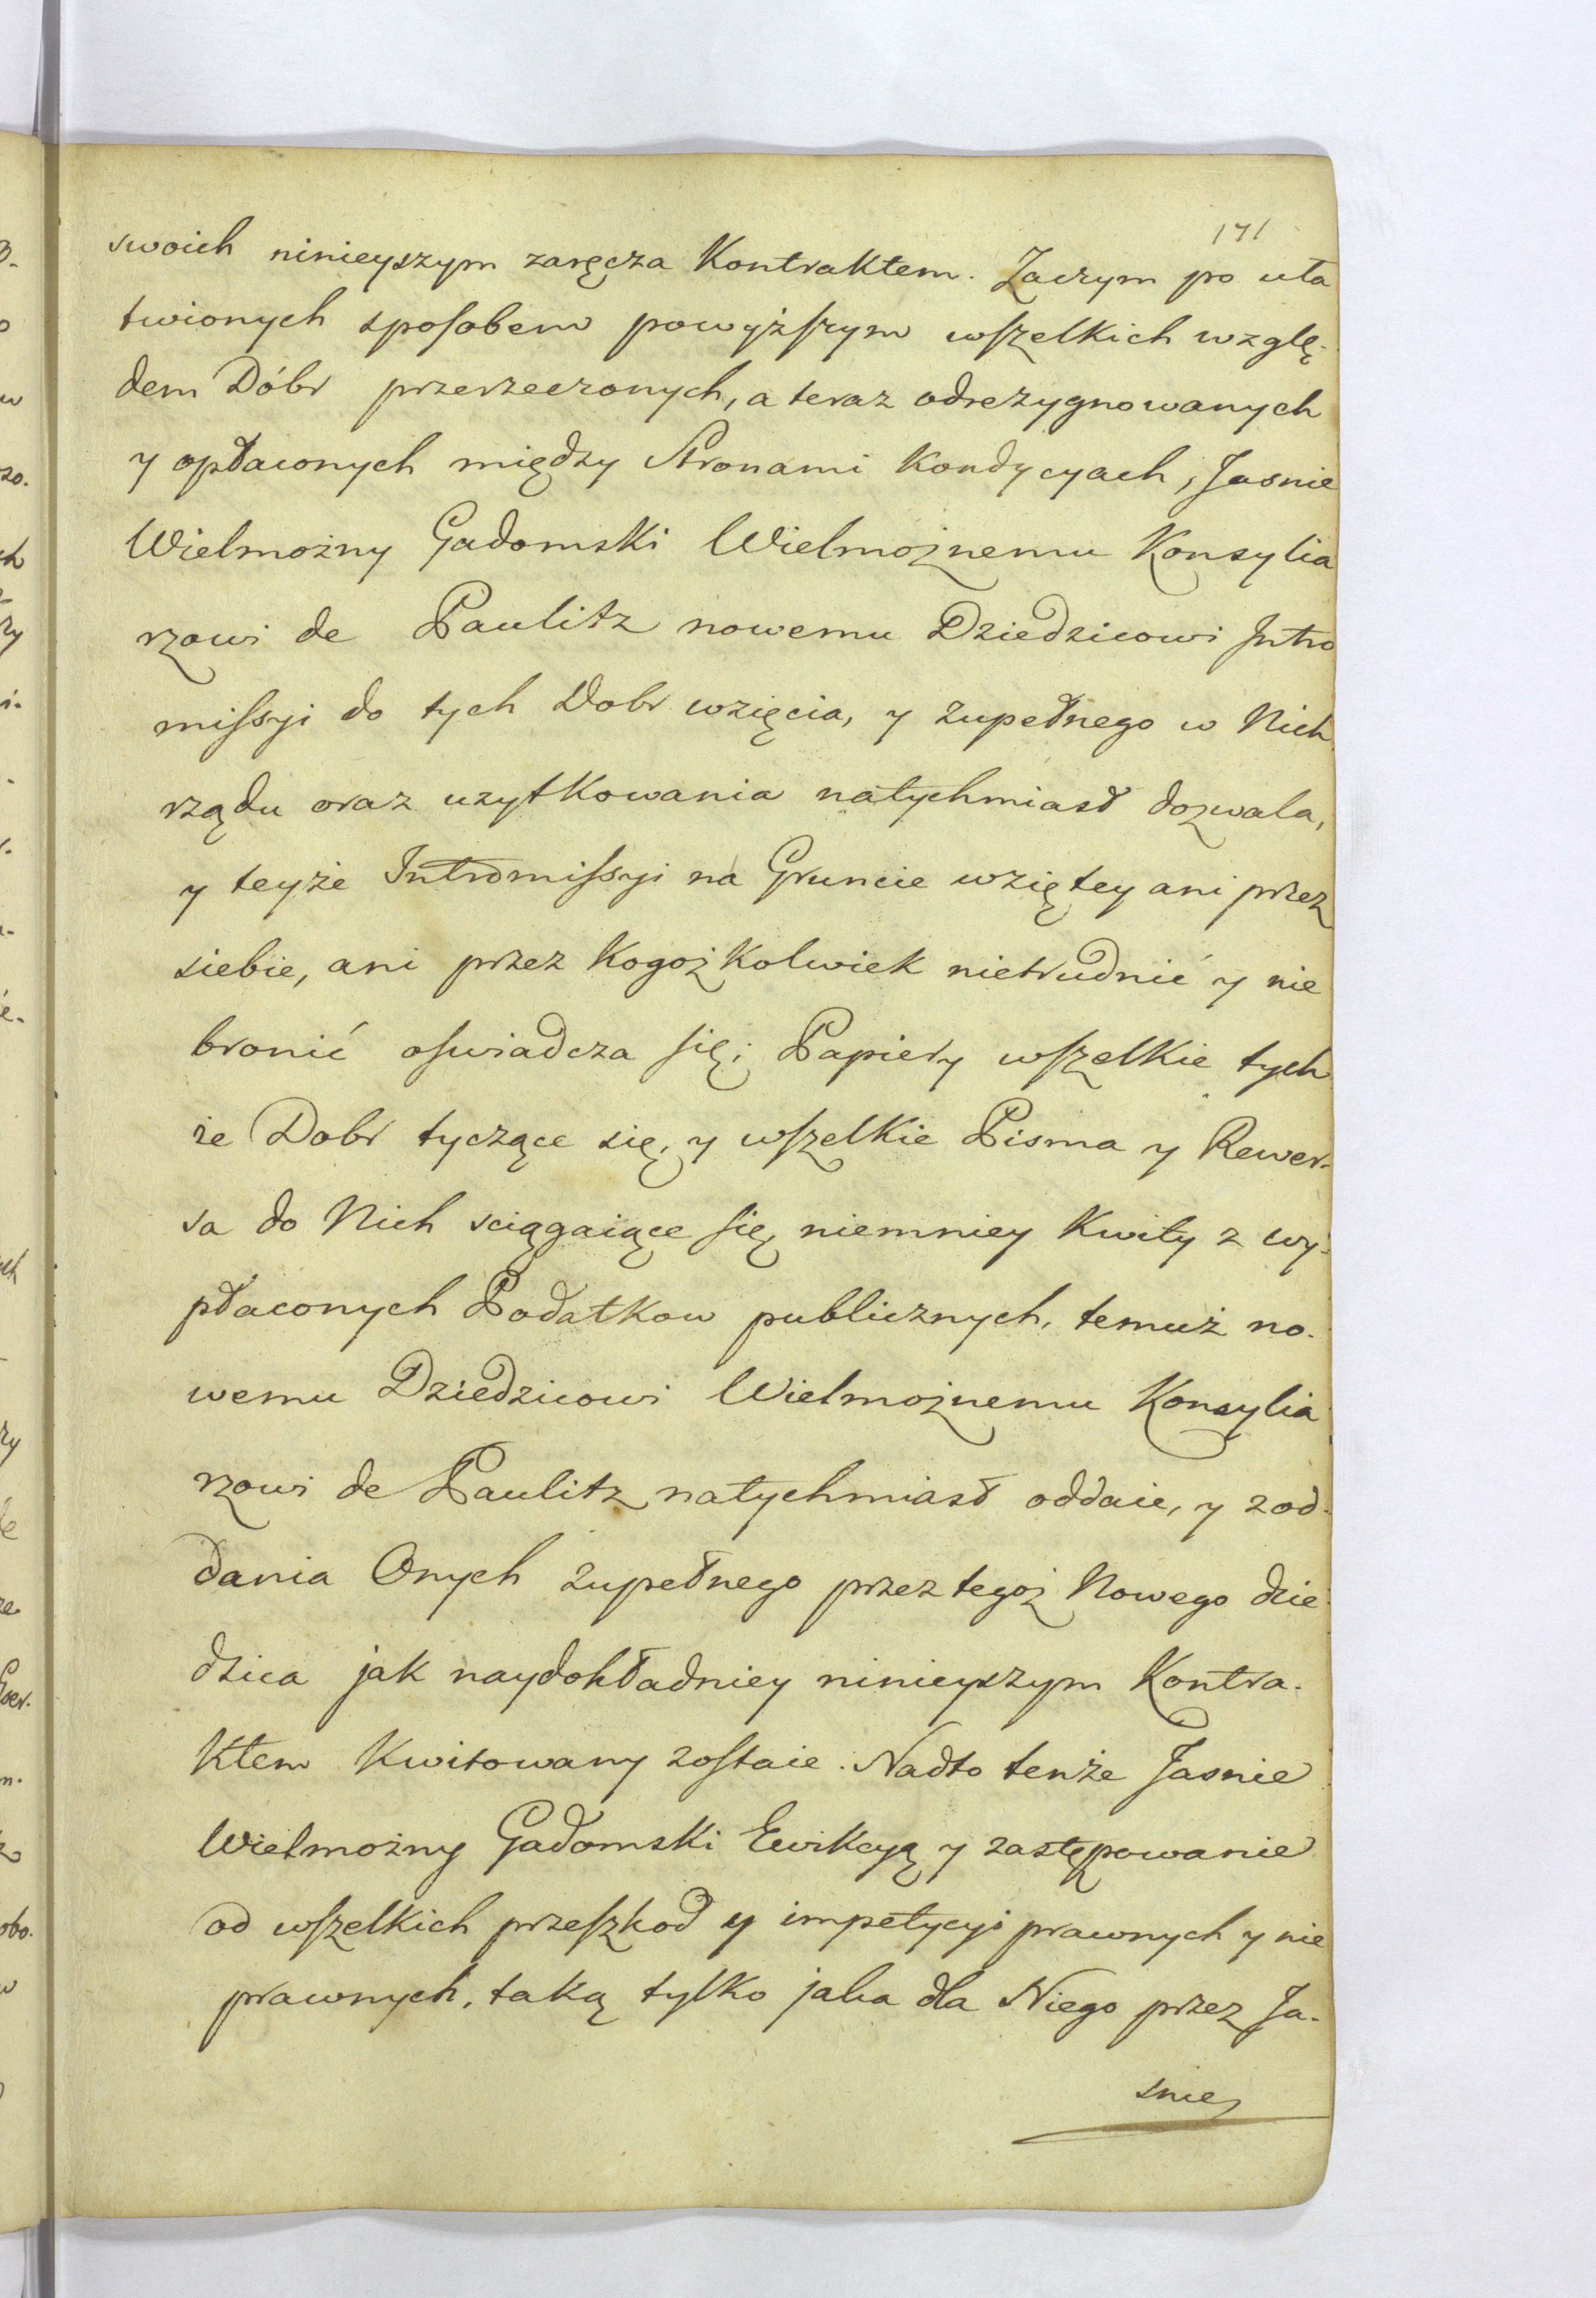 171
swoich ninieyszym zaręcza Kontraktem. Zaczym po uła
twionych sposobem powyższym wszelkich wzglę-
dem Dóbr przerzeczonych, a teraz odrezygnowanych
y opłaconych między Stronami Kondycyach, Jasnie
Wielmożny Gadomski Wielmożnemu Konsylia
rzowi de Paulitz nowemu Dziedzicowi Intro
missyi do tych Dobr wzięcia, y zupełnego w Nich
rządu oraz uzytkowania natychmiast dozwala,
y teyże Intromissyi na Gruncie wziętey ani przez
siebie, ani przez Kogożkolwiek nietrudnić y nie
bronić oswiadcza się; Papiery wszelkie tych
że Dobr tyczące się, y wszelkie Pisma y Rewer-
sa do Nich sciągaiące się, niemniey Kwity z wy-
płaconych Podatkow publicznych, temuż no-
wemu Dziedzicowi Wielmożnemu Konsylia
rzowi de Paulitz natychmiast oddaie, y z od-
dania Onych zupełnego przez tegoż Nowego dzie
dzica jak naydokładniey ninieyszym Kontra-
ktem Kwitowany zostaie. Nadto tenże Jasnie
Wielmożny Gadomski Ewikcyą y zastępowanie
od wszelkich przeszkod y impetycyi prawnych y nie
prawnych, taką tylko jaka dla Niego przez Ja-
snie